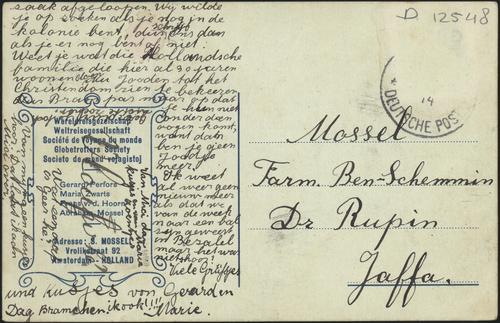 zaak afgeloopen. Wij wilde
je op zoeken als je nog in de
kolonie bent, schrijf ons dan
als je er nog bent of niet.
Weet je wat die Hollandsche
familie die hier al 30 jaren
woonen de Joden tot het
Christendom zien te bekeeren
dus Bram pas maar op dat
ze hun niet
onder de
oogen komt,
want dan
ben je geen
Jood
meer!
Ik weet
al weer geen
nieuws meer
als dat we
van de week
naar een bal
zijn geweest
in Bezalel
maar het was
niets hoor!
Veele Grüsjes
und kusjes von Gerard en
Dag Bramchen ikook!!! Marie.
Wereldreisgezelschap
Weltreisegesellschaft
Société de Voyage du monde
Globetrotters Society
Societo de mond'vojagistoj
Gerard Perford
Maria Zwarts
Frans v.d. Hoorn
Abraham Mossel
Adresse: S. MOSSEL
Vrolikstraat 92
Amsterdam - HOLLAND
D 12548
DEUTSCHE POST
14
Mossel
Farm. Ben-Schemmin
Dr Rupin
Jaffa.